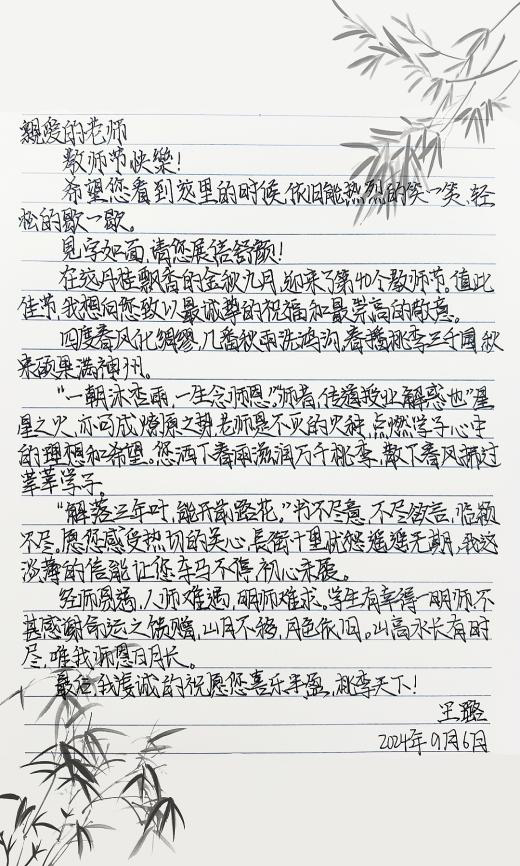 親爱的老师
教师节快樂!
希望您看到这里的时候,依旧能热烈的笑一笑、轻
松的歇一歇。
見字如面,请您展信舒颜!
在这丹桂飘香的金秋九月,迎来了第40个教师节,值此
佳节,我想向您致以最诚挚的祝福和最崇高的敬意。
四度春风化绸缪,几番秋雨洗鸿沟。春播桃李三千圃,秋
来硕果满神州。
“一朝沐杏雨,一生念师恩。”“师者,传道授业解惑也”星
星之火,亦可成燎原之势,老师是不灭的火种,点燃学子心中
的理想和希望。您洒下春雨滋润万千桃李,散下春风拂过
莘莘学子。
“解落三年叶,能开前路花。”书不尽意,不尽欲言,临颖
不尽。愿您感受热切的关心,長街千里 遥遥无期,我这
淡薄的信能让您车马不停,初心亲展。
经师易遇,人师难遇,明师难求。学生有幸得一明师,不
甚感谢命运之馈赠,山月不移,月色依旧。山高水长有时
尽,唯我师恩日月长。
最后,我虔诚的祝愿您喜乐丰盈,桃李天下!
王璐
2024年9月6日